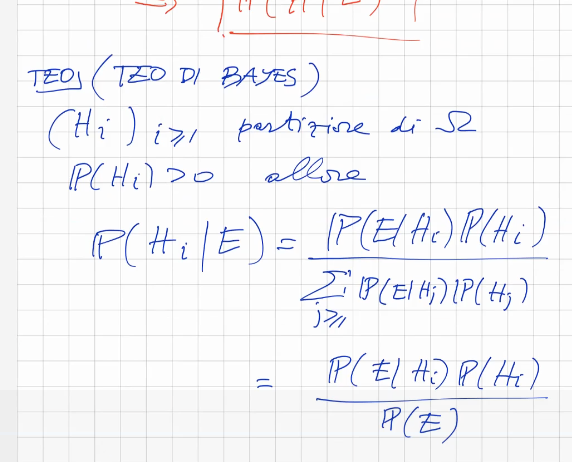 TEO (TEO DI BAYES)
(Hi) i⩾1 partizione di Ω
ℙ(Hi)>0 allora
ℙ(Hi|E) = ℙ(E|Hi)ℙ(Hi) / ∑j⩾1 ℙ(E|Hj)ℙ(Hj)
= ℙ(E|Hi)ℙ(Hi) / ℙ(E)